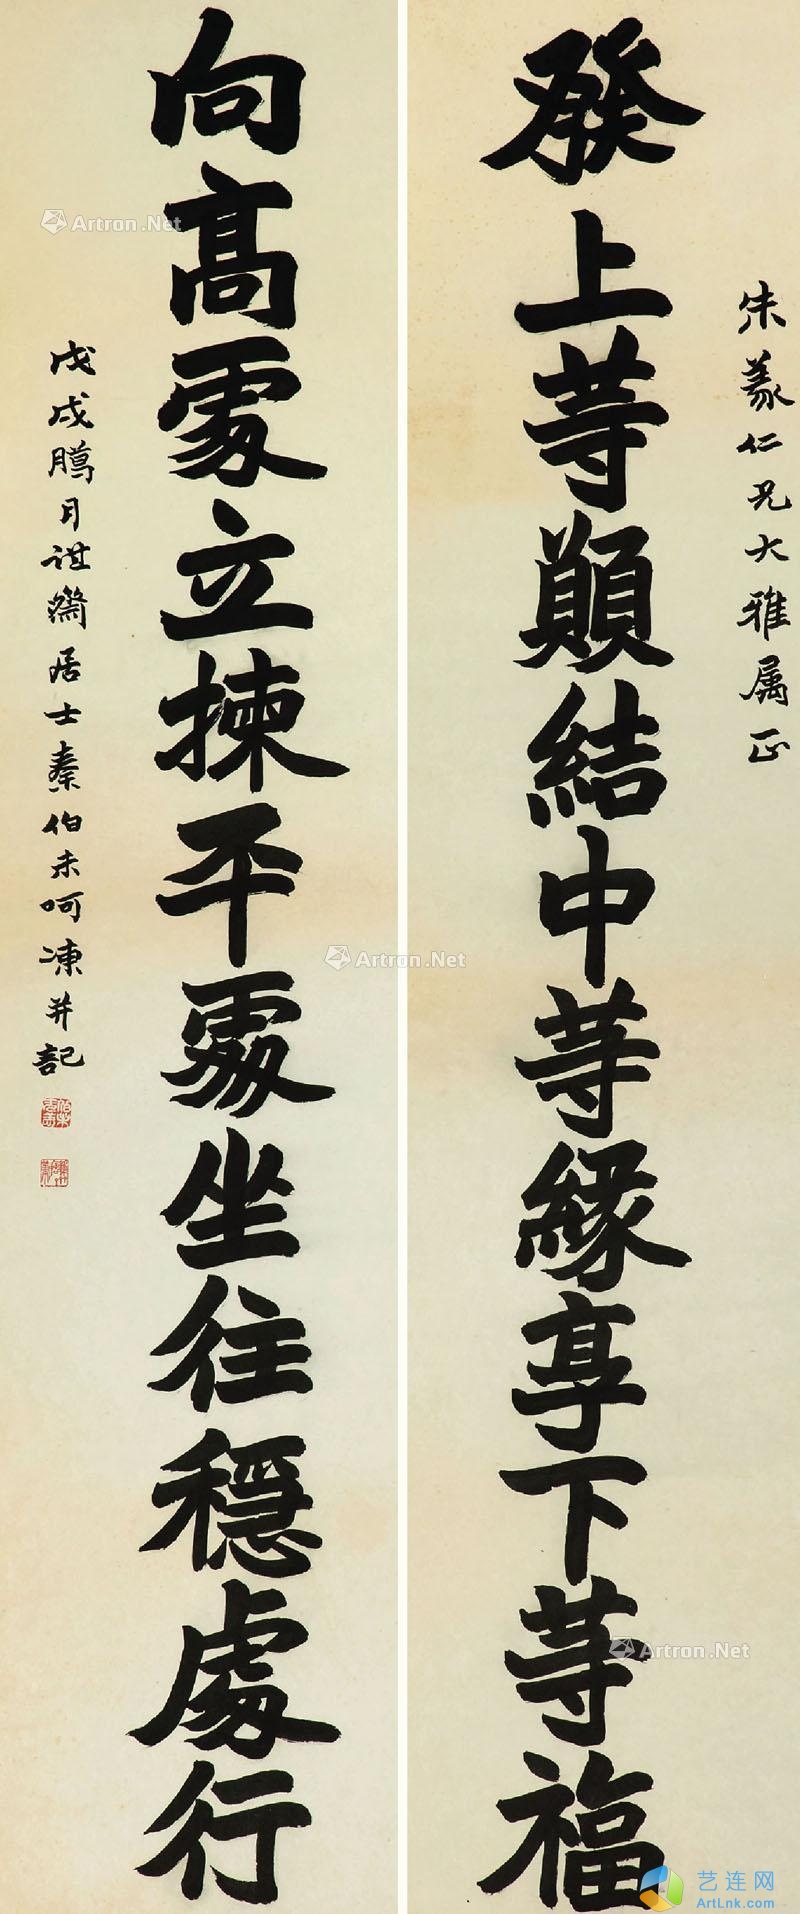 發上等願結中等緣享下等福
朱羲仁兄大雅属正
向高處立揀平處坐往穩處行
戊戌臈月謙齋居士秦伯未呵凍并記
Artron.Net
Artron.Net
Artron.Net
艺连网
ArtLnk.com